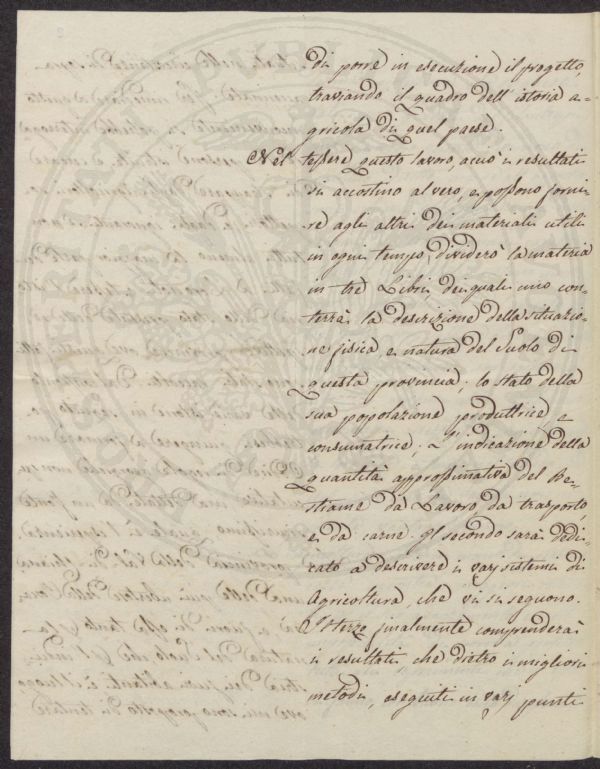 di porre in esecuzione il progetto,
tracciando il quadro dell'istoria a=
gricola di quel paese.
Nel tessere questo lavoro, acciò i resultati
si accostino al vero, e possono forni=
re agli altri dei materiali utili
in ogni tempo, dividerò la materia
in tre Libri dei quali uno con=
terrà la descrizione della situazio=
ne fisica e natura del Suolo di
questa provincia; lo stato della
sua popolazione produttrice e
consumatrice; L'indicazione della
quantità approssimativa del Be=
stiame da Lavoro, da trasporto
e da carne. Il secondo sarà dedi=
cato a descrivere i varj sistemi di
Agricoltura, che vi si seguono.
Il terzo finalmente comprenderà
i resultati, che dietro i migliori
metodi, eseguiti in varj punti